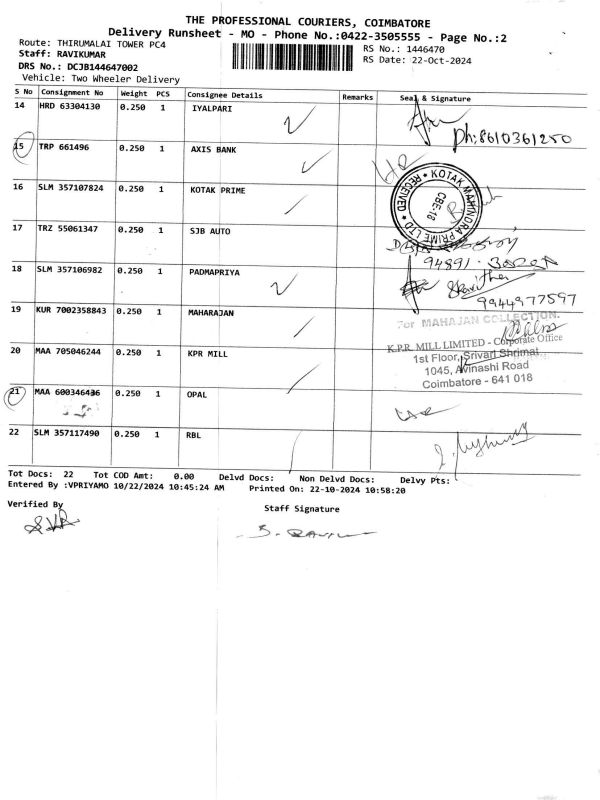 THE PROFESSIONAL COURIERS, COIMBATORE
Delivery Runsheet - MO - Phone No.:0422-3505555 - Page No.:2
Route: THIRUMALAI TOWER PC4
RS No.: 1446470
Staff: RAVIKUMAR
RS Date: 22-Oct-2024
DRS No.: DCJB144647002
Vehicle: Two Wheeler Delivery
S No Consignment No Weight PCS Consignee Details Remarks Seal & Signature
14 HRD 63304130 0.250 1 IYALPARI
Ph:8610361250
15 TRP 661496 0.250 1 AXIS BANK
16 SLM 357107824 0.250 1 KOTAK PRIME
KOTAK MAHINDRA PRIME LTD * RECEIVED *
CBE-18
17 TRZ 55061347 0.250 1 SJB AUTO
94891
18 SLM 357106982 0.250 1 PADMAPRIYA
9944977597
19 KUR 7002358843 0.250 1 MAHARAJAN
For MAHAJAN COLLECTION.
20 MAA 705046244 0.250 1 KPR MILL
K.P.R. MILL LIMITED - Corporate Office
1st Floor, Srivari Shrimat
1045, Avinashi Road
Coimbatore - 641 018
21 MAA 600346436 0.250 1 OPAL
22 SLM 357117490 0.250 1 RBL
Tot Docs: 22 Tot COD Amt: 0.00 Delvd Docs: Non Delvd Docs: Delvy Pts:
Entered By :VPRIYAMO 10/22/2024 10:45:24 AM Printed On: 22-10-2024 10:58:20
Verified By
Staff Signature